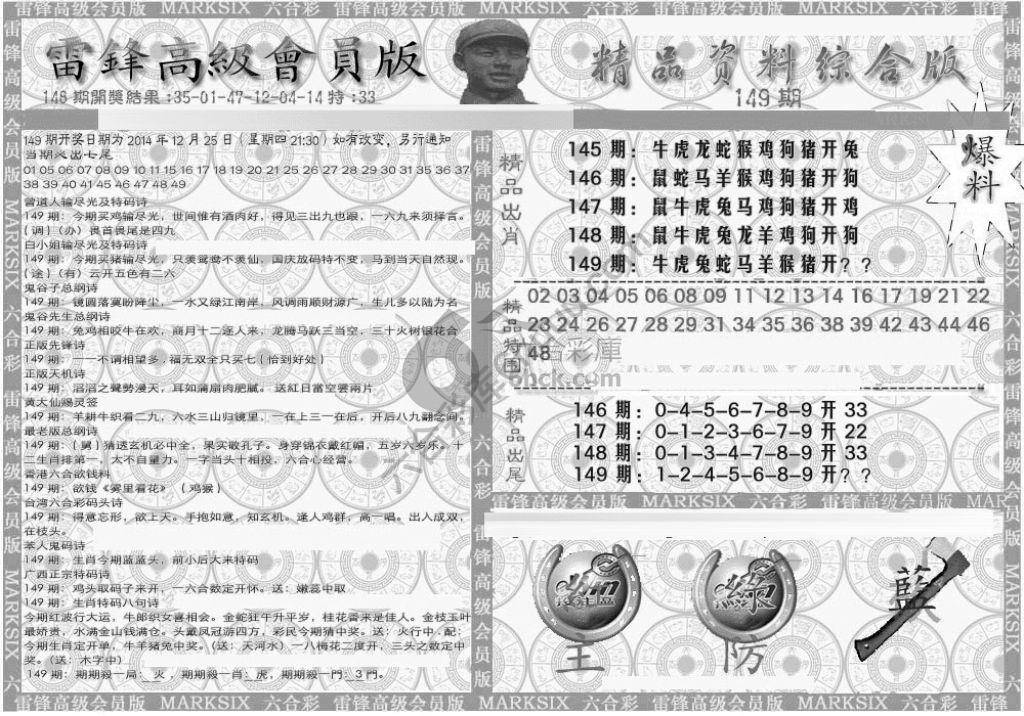 雷锋高级会员版 MARKSIX 六合彩 雷锋高级会员版 MARKSIX 六合彩 雷锋高级会员版 MARKSIX 六合彩 雷锋
雷鋒高級會員版
精品资料综合版
146期開獎結果:35-01-47-12-04-14特:33
149期
149期开奖日期为2014年12月25日(星期四21:30)如有改变,另行通知
当期必出七尾
01 05 06 07 08 09 10 11 15 16 17 18 19 20 21 25 26 27 28 29 30 31 35 36 37
38 39 40 41 45 46 47 48 49
曾道人输尽光及特码诗
149期:今期买鸡输尽光,世间惟有酒肉好,得见三出九也跟,一六九来须择言。
(调)(办)畏首畏尾是四九
白小姐输尽光及特码诗
149期:今期买猪输尽光,只羡鸳鸯不羡仙,国庆放码特不变,马到当天自然现。
(途)(有)云开五色有二六
鬼谷子总纲诗
149期:镜圆落寞盼降尘,一水又绿江南岸,风调雨顺财源广,生儿多以陆为名
鬼谷先生总纲诗
149期:兔鸡相咬牛在欢,商月十二逐人来,龙腾马跃三当空,三十火树银花合
正版先锋诗
149期:一一不谓相望多,福无双全只买七(恰到好处)
正版天机诗
149期:滔滔之聲勢漫天,耳如蒲扇肉肥腻。送紅日當空雲兩片
黄大仙赐灵签
149期:羊耕牛织看二九,六水三山归镜里,一在上三一在后,开后八九翻之间。
最老版总纲诗
149期:(舅)猜透玄机必中全,果实敬孔子。身穿锦衣戴红帽,五岁六岁乐。十
二生肖排第一,太不自量力。一字当头十相投,六合心经营。
香港六合欲钱料
149期:欲钱《雾里看花》(鸡猴)
台湾六合彩码头诗
149期:得意忘形,欲上天。手抱如意,知玄机。逢人鸡群,高一唱。出入成双,
在枝头。
苯人鬼码诗
149期:生肖今期蓝蓝头,前小后大来特码
广西正宗特码诗
149期:鸡头取码子来开,一六合数定开怀。送:嫩蕊中取
149期:生肖特码八句诗
今期红波行大运,牛郎织女喜相会。金蛇狂午升平岁,桂花香来是佳人。金枝玉叶
最娇贵,水满金山钱满仓。头戴凤冠游四方,彩民今期猜中奖。送:火行中,配:
今期生肖定开单,牛羊猪兔中奖。(送:天河水)一八梅花二度开,三头之数定中
奖。(送:木字中)
149期:期期殺一局:火,期期殺一肖:虎,期期殺一門:3門。
精品出肖
145期:牛虎龙蛇猴鸡狗猪开兔
146期:鼠蛇马羊猴鸡狗猪开狗
147期:鼠牛虎兔马鸡狗猪开鸡
148期:鼠牛虎兔龙羊鸡狗开狗
149期:牛虎兔蛇马羊猴猪开??
爆料
精品特围
02 03 04 05 06 08 09 11 12 13 14 16 19 21 22
23 24 26 27 28 29 31 34 35 36 38 39 42 43 44 46
48
精品出尾
146期:0-4-5-6-7-8-9开33
147期:0-1-2-3-6-7-9开22
148期:0-1-3-4-6-7-9开33
149期:1-2-4-5-6-8-9开??
雷锋高级会员版 MARKSIX 六合彩 雷锋高级会员版 MARKSIX
綠
藍
主
防
雷锋高级会员版 MARKSIX 六合彩 雷锋高级会员版 MARKSIX 六合彩 雷锋高级会员版 MARKSIX 六合彩 雷锋